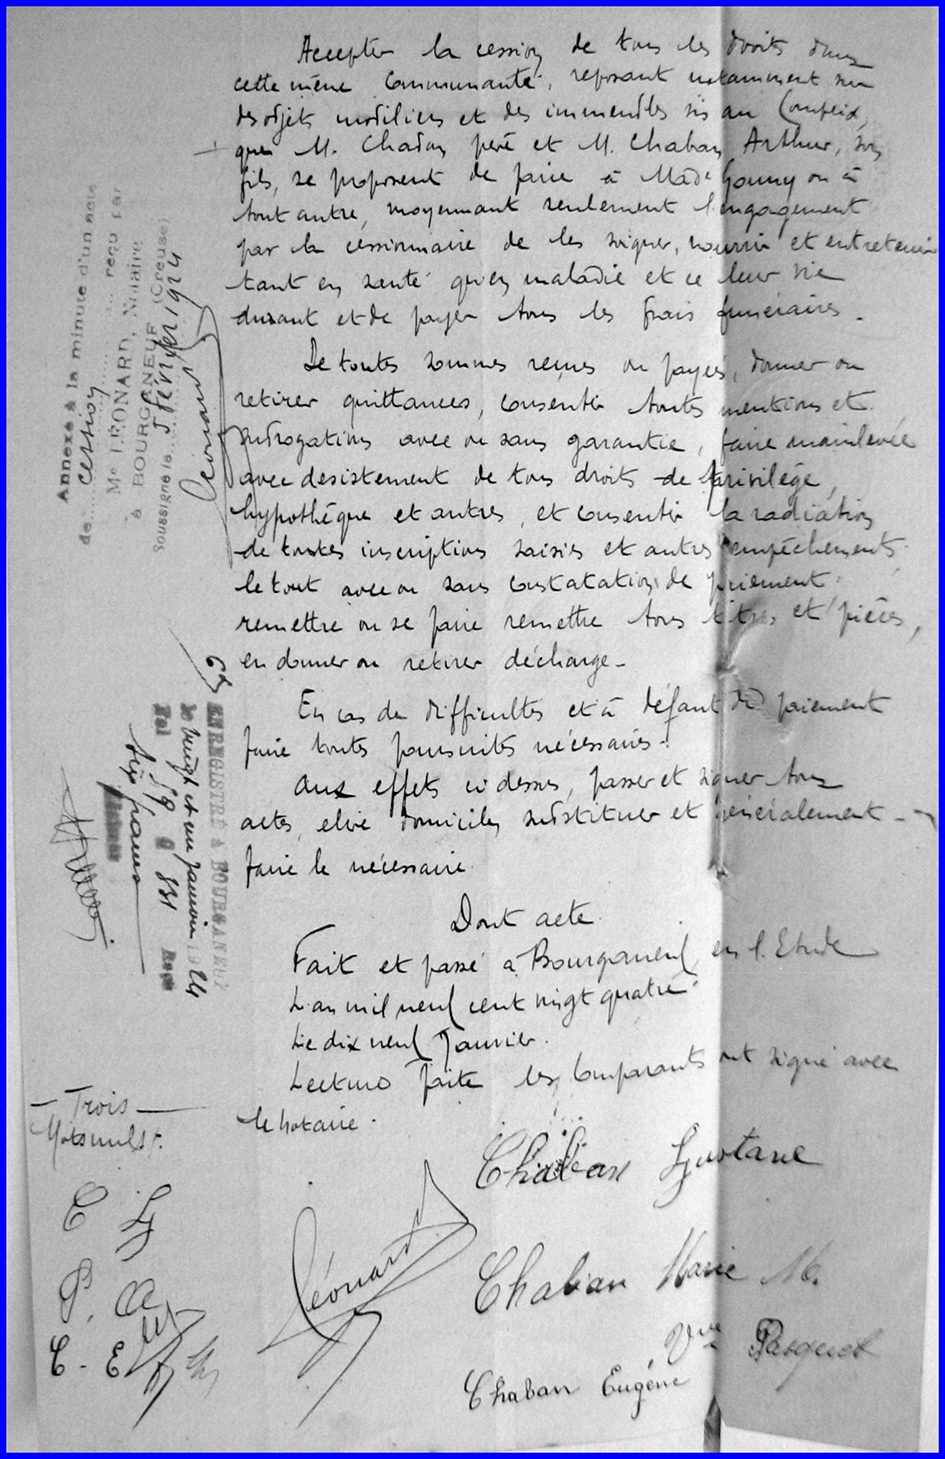 Accepter la cession de tous les droits dans
cette même communauté, reposant notamment sur
des objets mobiliers et des immeubles sis au Compeix,
que M. Chaban père et M. Chaban Arthur, son
fils, se proposent de faire à Made Gouny ou à
tout autre, moyennant seulement l'engagement
par la cessionnaire de les soigner, nourrir et entretenir
tant en santé qu'en maladie et ce leur vie
durant et de payer tous les frais funéraires.
De toutes sommes reçues ou payées, donner ou
retirer quittances, consentir toutes mentions et
subrogations avec ou sans garantie, faire mainlevée
avec desistement de tous droits de privilége,
hypothèque et autres, et consentir la radiation
de toutes inscriptions saisies et autres empêchements
le tout avec ou sans constatation de paiement
remettre ou se faire remettre tous titres et pièces,
en donner ou retirer décharge.
En cas de difficultés et à défaut de paiement
faire toutes poursuites nécessaires.
Aux effets ci dessus, passer et signer tous
actes, elire domicile, substituer et généralement
faire le nécessaire.
Dont acte
Fait et passé à Bourganeuf, en l'Etude
L'an mil neuf cent vingt quatre
Le dix neuf Janvier.
Lecture faite les comparants ont signé avec
le notaire.
Chaban Gustave
Chaban Marie M.
Vve Pasquet
Chaban Eugène
Léonard
Annexé à la minute d'un acte
de cession reçu par
Me LÉONARD, Notaire
à BOURGANEUF (Creuse)
soussigné le 5 février 1924
Léonard
ENREGISTRÉ A BOURGANEUF
le vingt et un janvier 1924
Fol 59 C 831 Reçu
six francs
Trois
Mots nuls
C G
P. A
C - E